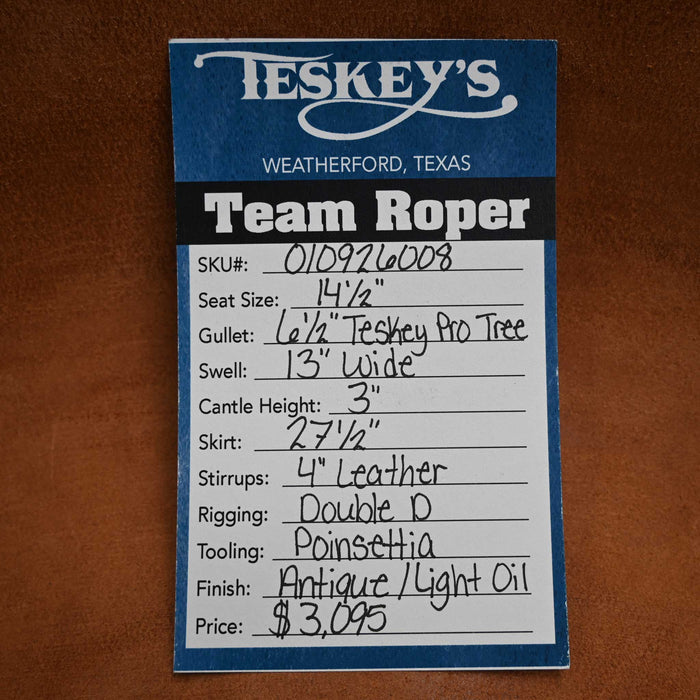 TESKEY'S
WEATHERFORD, TEXAS
Team Roper
SKU#: 010926008
Seat Size: 14 1/2"
Gullet: 6 1/2" Teskey Pro Tree
Swell: 13" Wide
Cantle Height: 3"
Skirt: 27 1/2"
Stirrups: 4" Leather
Rigging: Double D
Tooling: Poinsettia
Finish: Antique/Light Oil
Price: $3,095